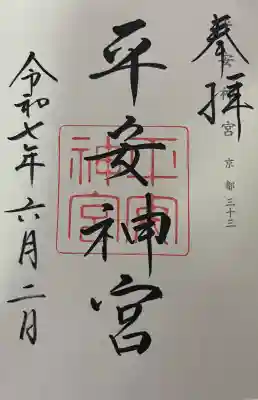 奉拝
平安神宮 京都三十三
平安神宮
平安
神宮
令和七年六月二日